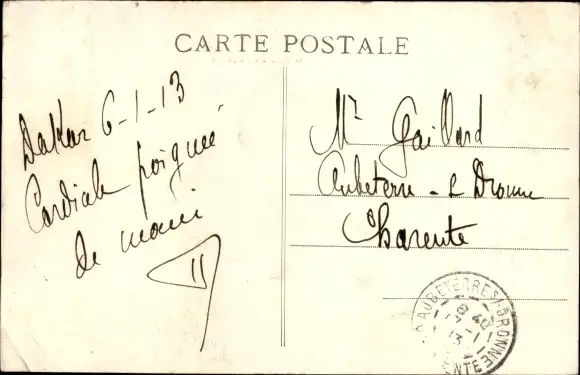 CARTE POSTALE
Dakar 6-1-13
Cordiale poignée
de main
Mr Gaillard
Aubeterre - s Dronne
Charente
AUBETERRE S/ DRONNE
8 40
13
ENTE